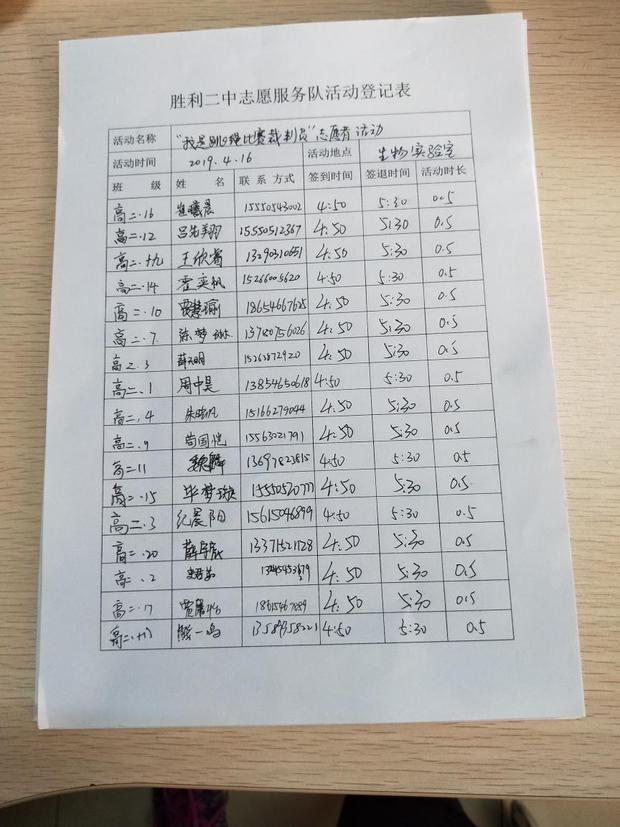 胜利二中志愿服务队活动登记表
活动名称 "我是 比赛裁判员"志愿者活动
活动时间 2019.4.16 活动地点 生物实验室
班 级 姓 名 联系方式 签到时间 签退时间 活动时长
高二.16 崔曦晨 15550543002 4:50 5:30 0.5
高二.12 吕先翔 15550512367 4:50 5:30 0.5
高二.十九 王欣睿 4:50 5:30 0.5
高二.14 霍奕帆 15266005620 4:50 5:30 0.5
高二.10 18654667625 4:50 5:30 0.5
高二.7 陈梦琳 13780756026 4:50 5:30 0.5
高二.3 薛天明 15263872920 4:50 5:30 0.5
高二.1 周中昊 13854650618 4:50 5:30 0.5
高二.4 朱晓凡 15166279044 4:50 5:30 0.5
高二.9 苟国恺 15563021791 4:50 5:30 0.5
高二11 13697823815 4:50 5:30 0.5
高二.15 毕梦璇 15550520777 4:50 5:30 0.5
高二.3 纪晨阳 15615046899 4:50 5:30 0.5
高二.20 薛宇辰 13371521128 4:50 5:30 0.5
高二.2 4:50 5:30 0.5
高二.17 4:50 5:30 0.5
高二.十八 熊一鸣 13589958221 4:50 5:30 0.5